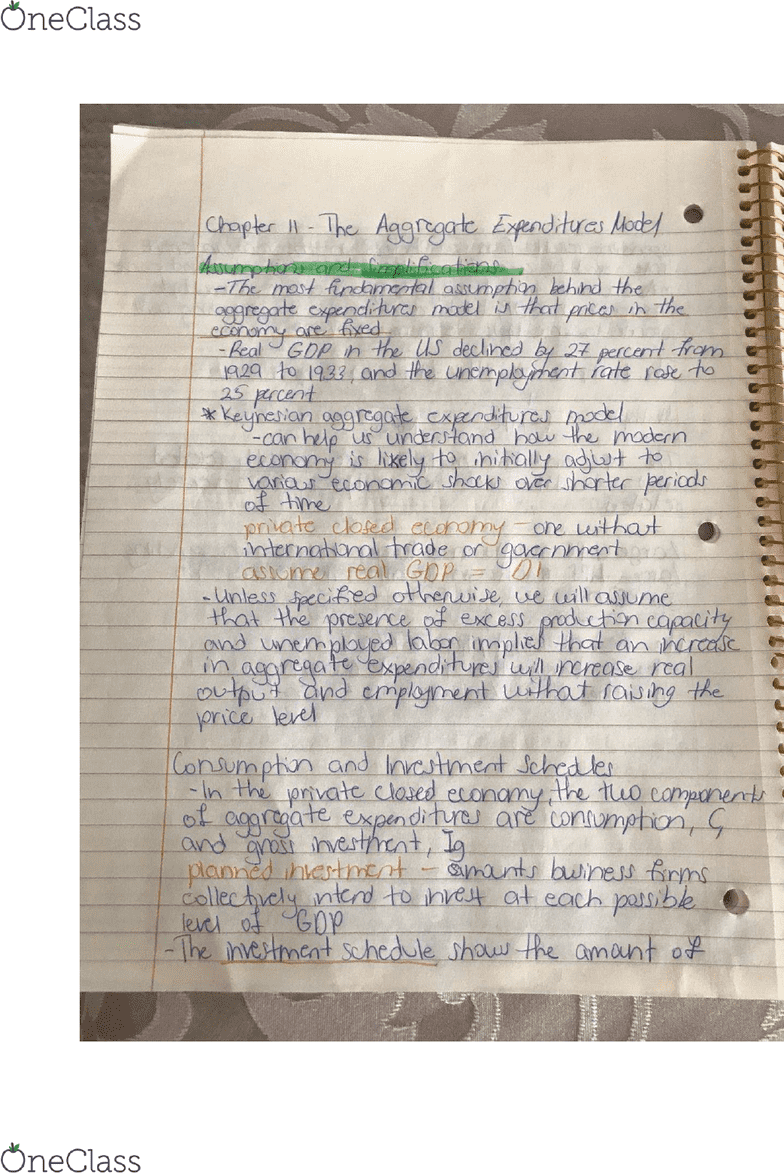 OneClass
Chapter 11 - The Aggregate Expenditures Model
Assumptions and Simplifications
-The most fundamental assumption behind the
aggregate expenditures model is that prices in the
economy are fixed
-Real GDP in the US declined by 27 percent from
1929 to 1933, and the unemployment rate rose to
25 percent
*Keynesian aggregate expenditures model
-can help us understand how the modern
economy is likely to initially adjust to
various economic shocks over shorter periods
of time
private closed economy - one without
international trade or government
assume real GDP = DI
-Unless specified otherwise, we will assume
that the presence of excess production capacity
and unemployed labor implies that an increase
in aggregate expenditures will increase real
output and employment without raising the
price level
Consumption and Investment Schedules
-In the private closed economy, the two components
of aggregate expenditures are consumption, C,
and gross investment, Ig
planned investment - amounts business firms
collectively intend to invest at each possible
level of GDP
-The investment schedule show the amount of
OneClass